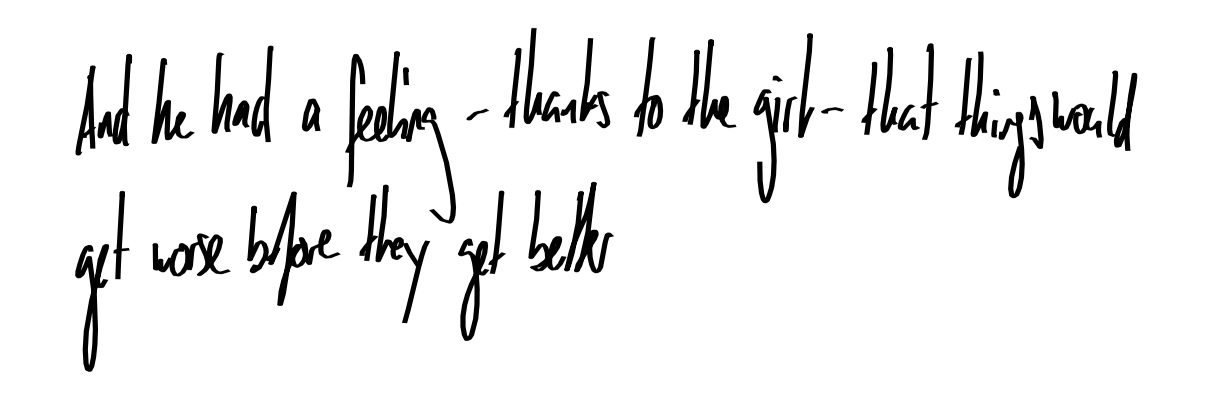 And he had a feeling - thanks to the girl - that things would
get worse before they get better